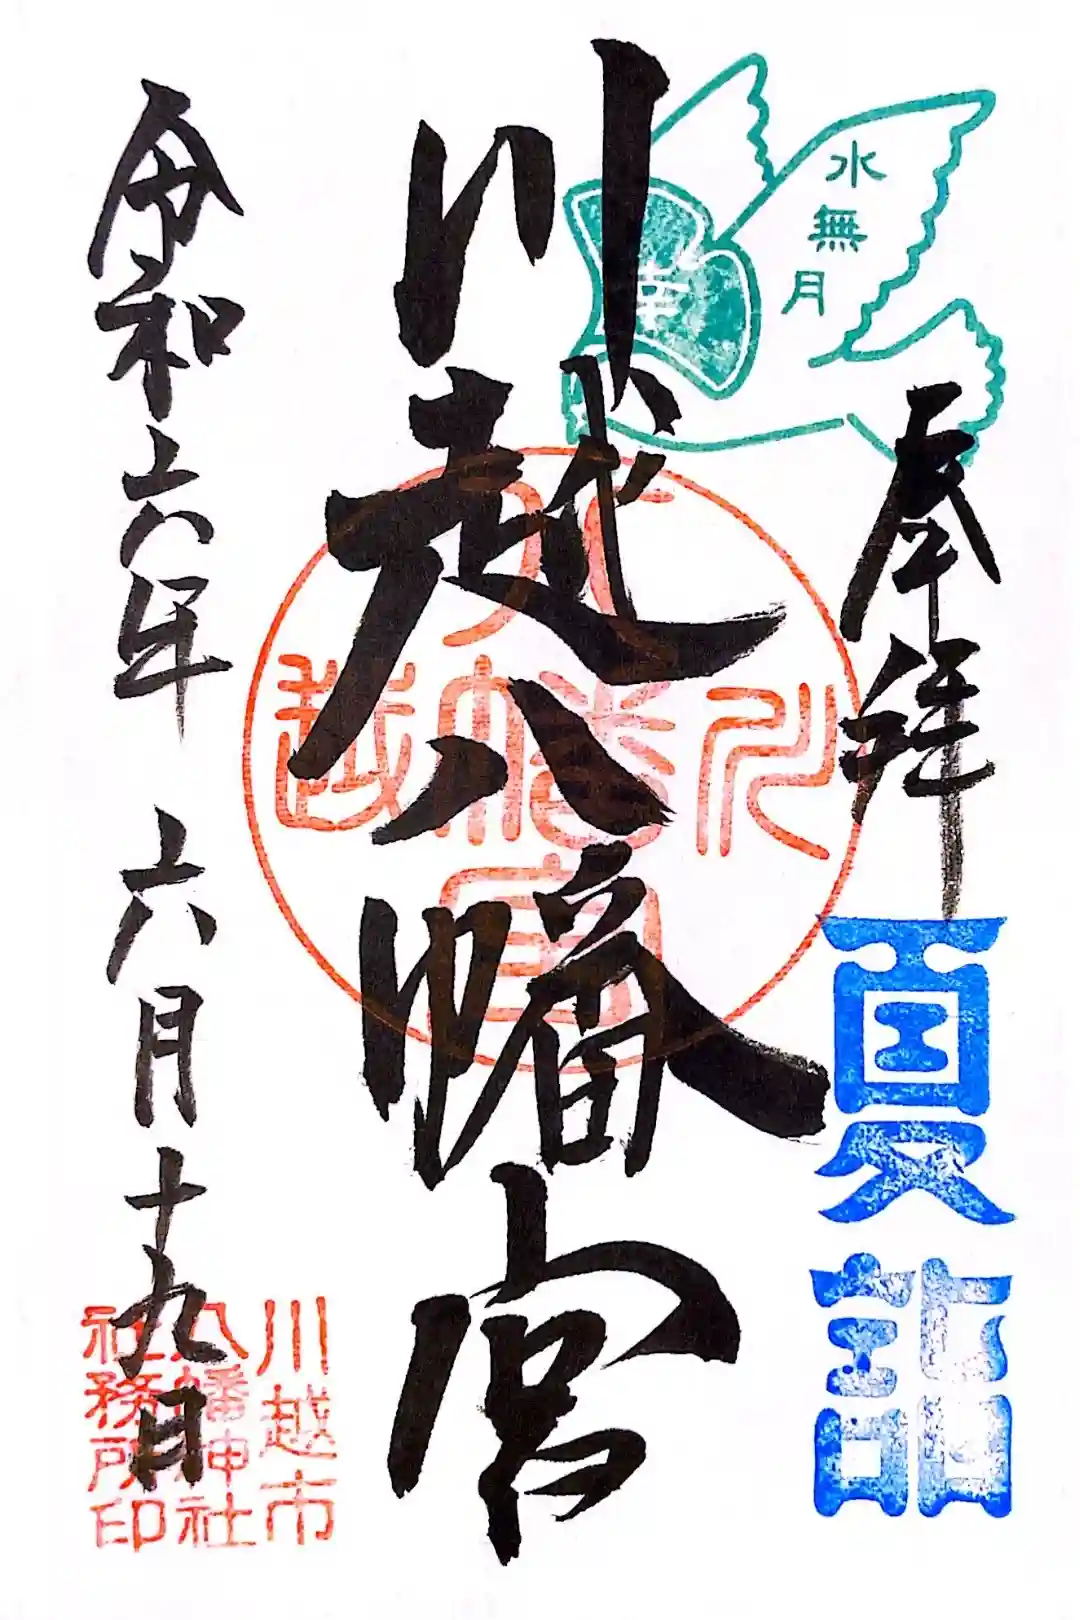 奉拝
夏詣
水無月
幸
川越八幡宮
八幡宮川越
令和六年 六月十九日
川越市
八幡神社
社務所印